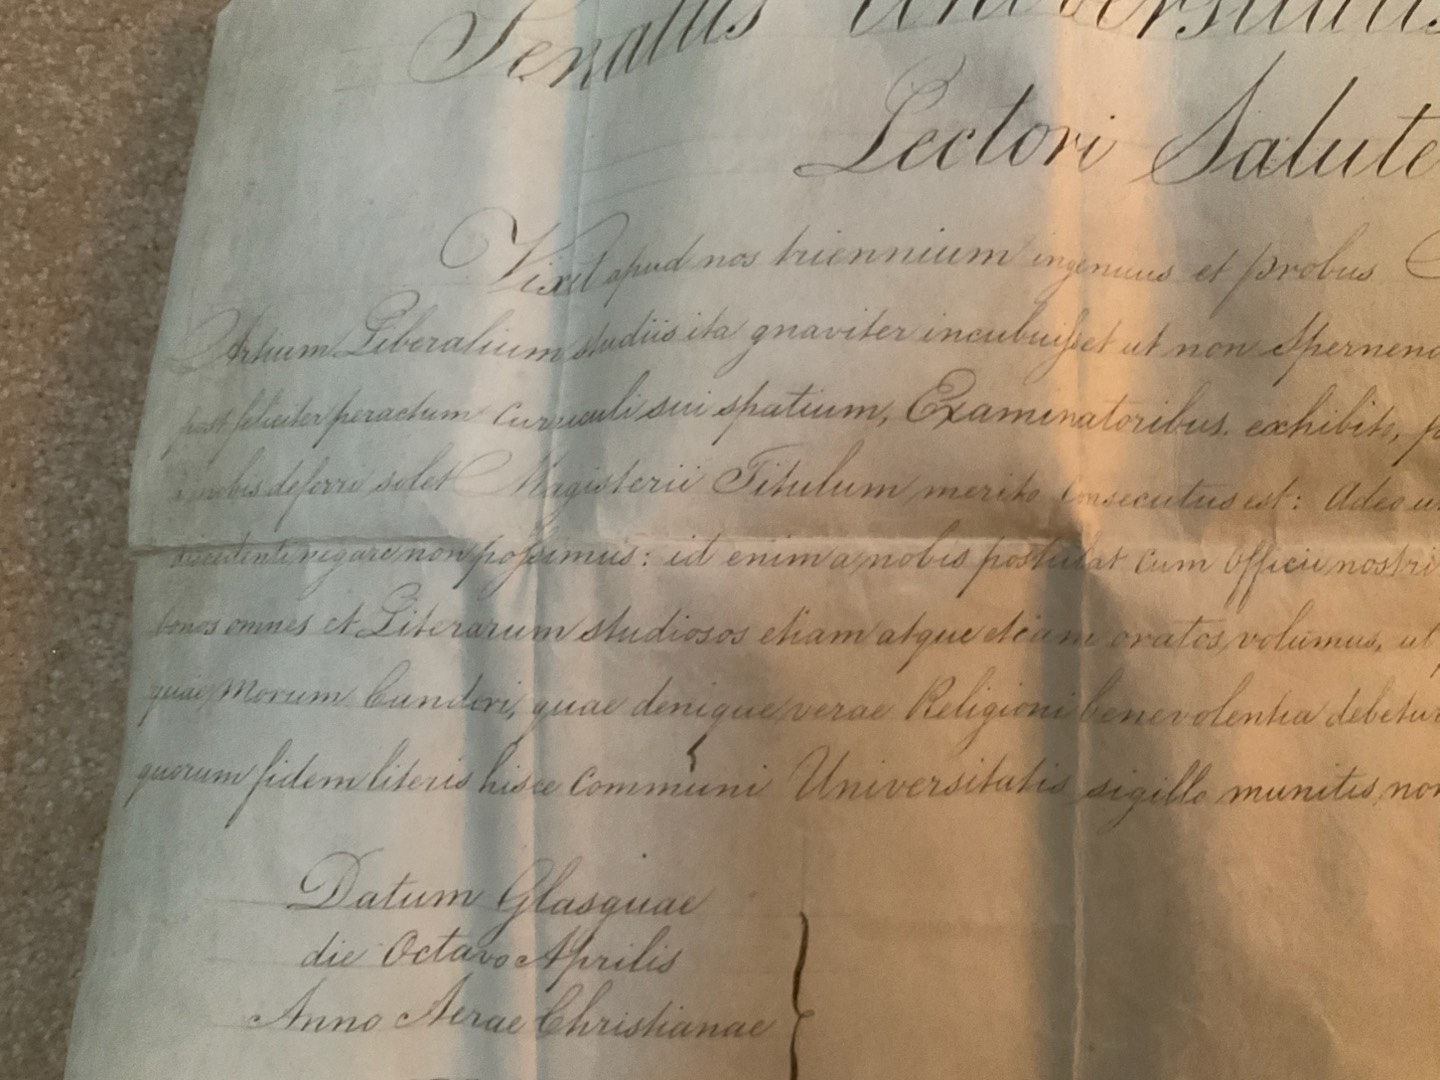 Senatus Universitatis
Lectori Salute
Vixit apud nos triennium ingenuus et probus
Artium Liberalium studiis ita gnaviter incubuisset ut non Spernend
post feliciter peractum curriculi sui spatium, Examinatoribus exhibito, p
a nobis deferri solet Magisterii Titulum merito Consecutus est: Adeo ut
decedenti negare non possimus: id enim a nobis postulat cum Officii nostri
bonos omnes et Literarum studiosos etiam atque etiam oratos volumus, ut
quae Morum Candori, quae denique verae Religioni benevolentia debetur
quorum fidem literis hisce Communi Universitatis sigillo munitis non
Datum Glasguae
die Octavo Aprilis
Anno Aerae Christianae